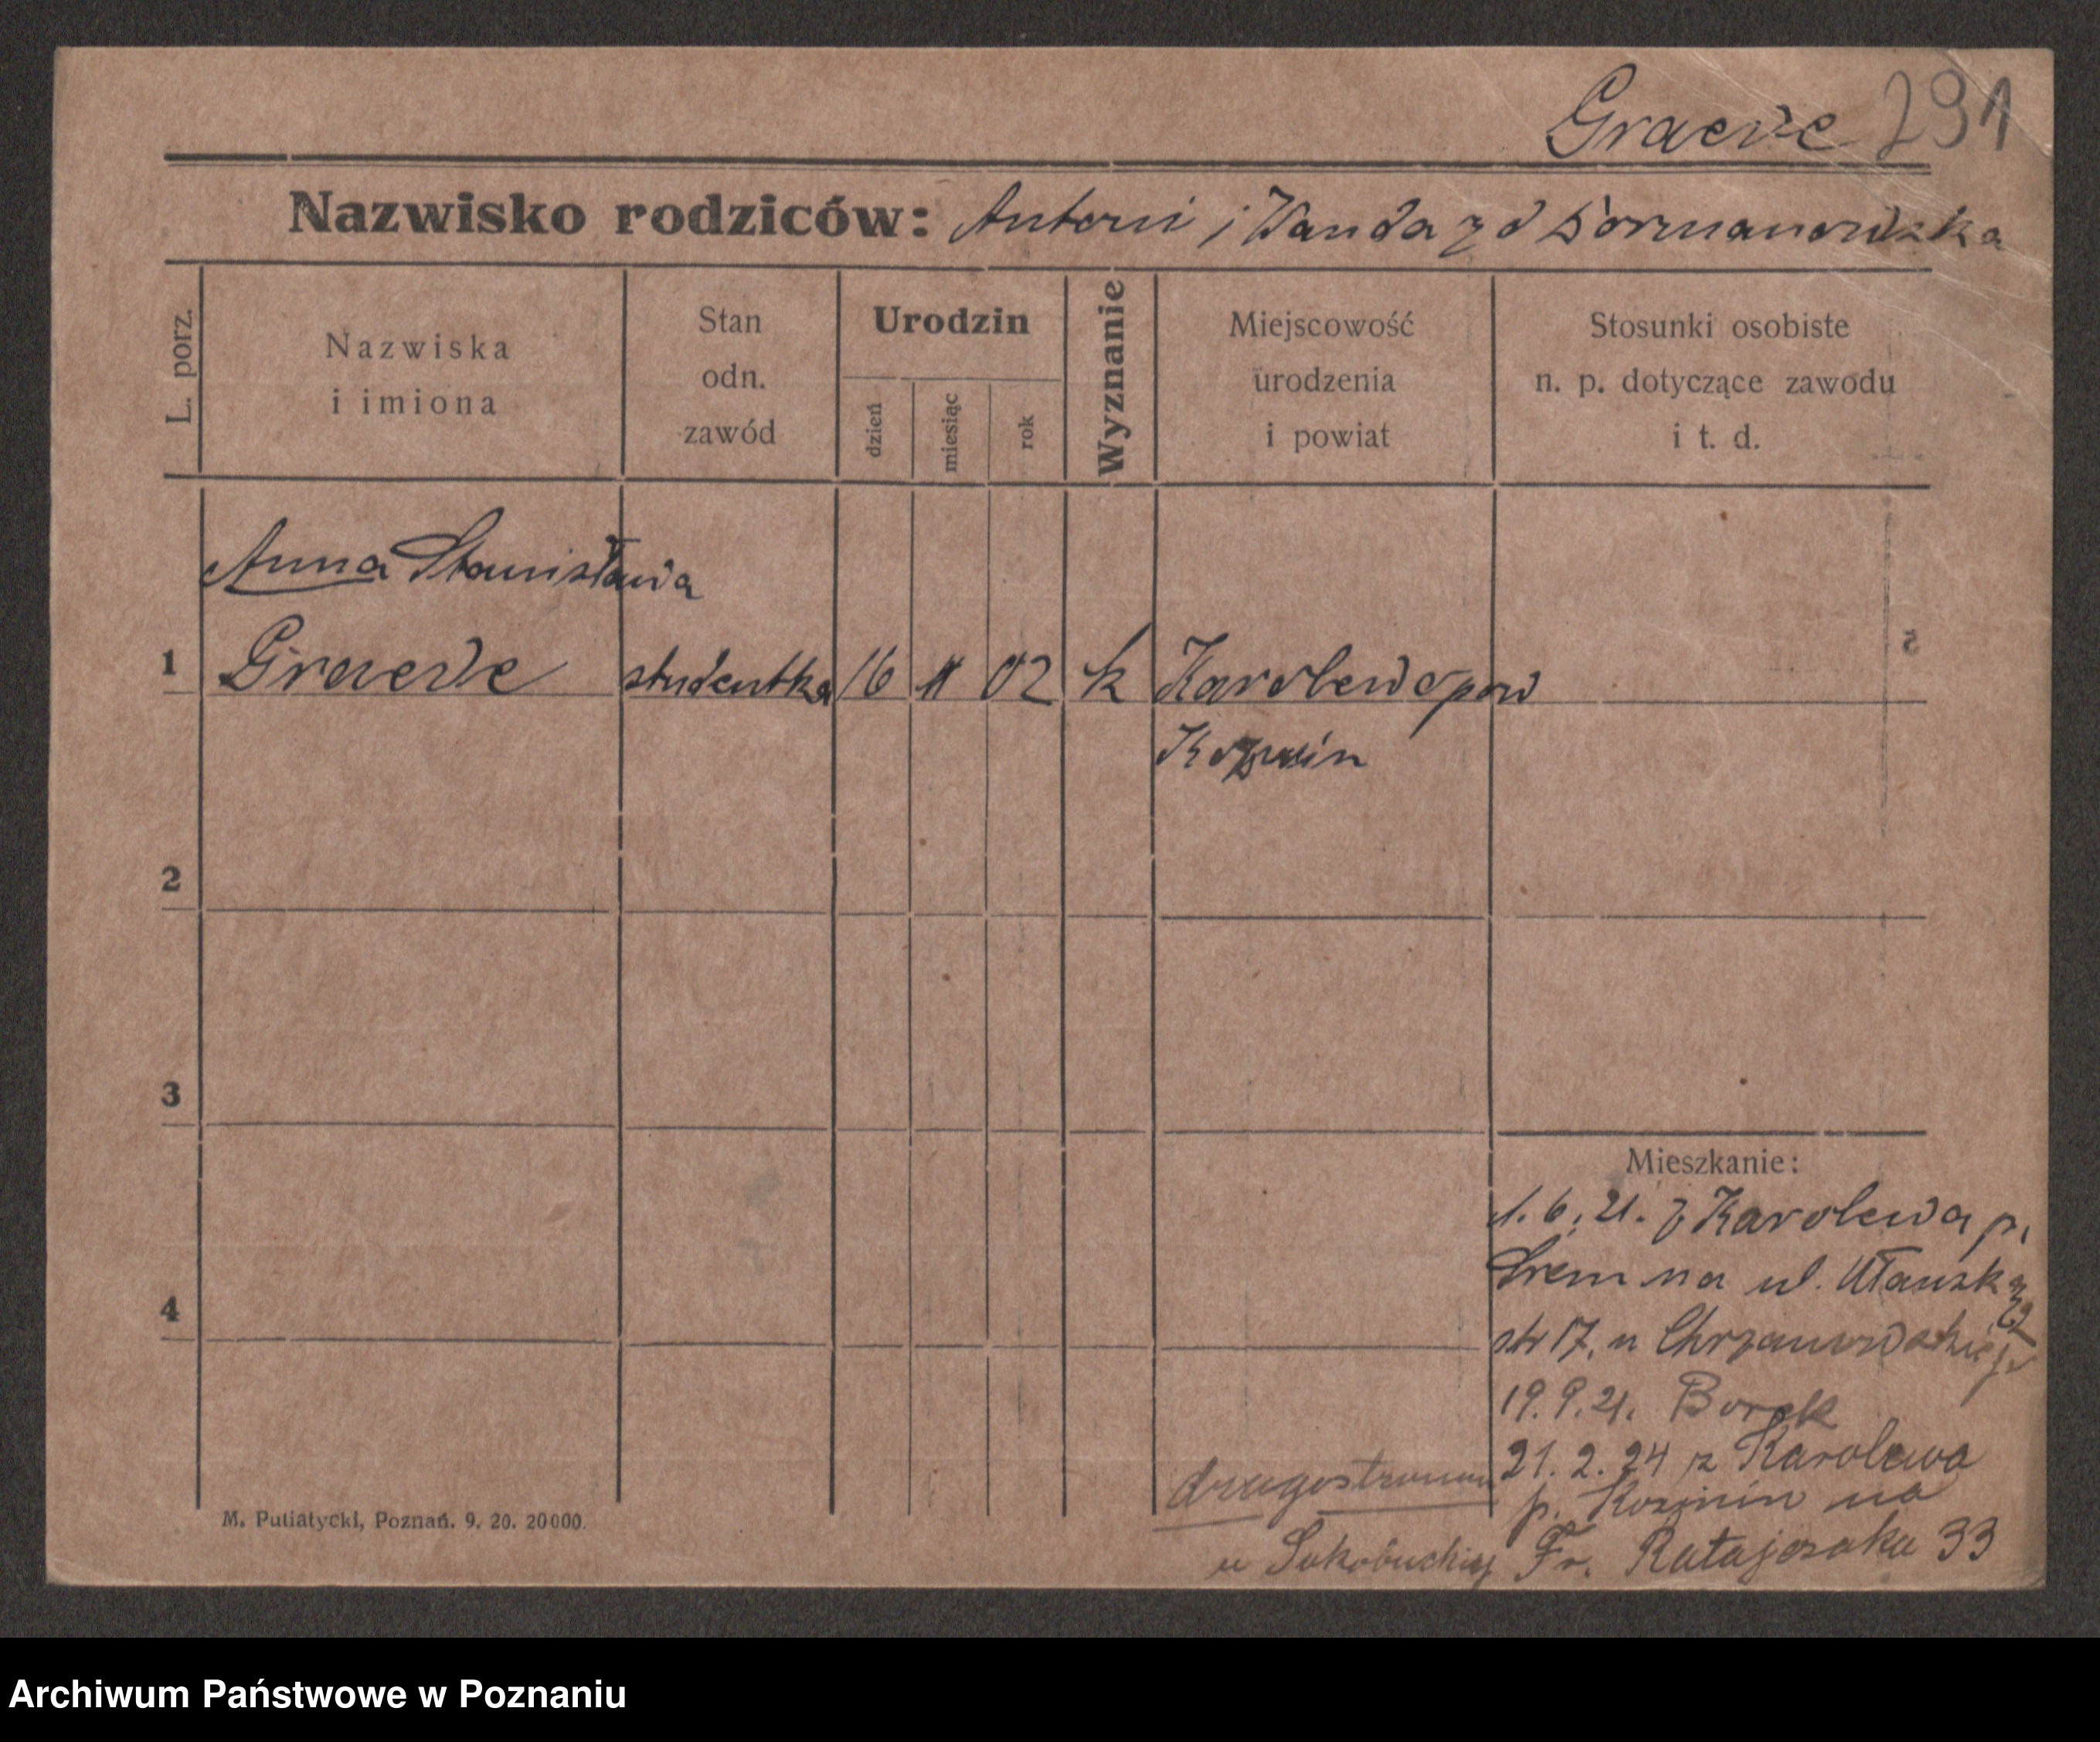 Graeve 291
Nazwisko rodziców: Antoni i Wanda z d
L. porz.
Nazwiska
i imiona
Stan
odn.
zawód
Urodzin
dzień
miesiąc
rok
Wyznanie
Miejscowość
urodzenia
i powiat
Stosunki osobiste
n. p. dotyczące zawodu
i t. d.
Anna Stanisława
1 Graeve studentka 16 11 02 k Karolewo pow
Koźmin
2
3
4
Mieszkanie:
1. 6. 21. z Karolewa p.
Śrem na ul. Ułańską
17. u Chrzanowskiej
19. 9. 21. Borek
21. 2. 24 z Karolewa
p. Kozmin na
Fr. Ratajczaka 33
u
M. Putiatycki, Poznań. 9. 20. 20000.
Archiwum Państwowe w Poznaniu